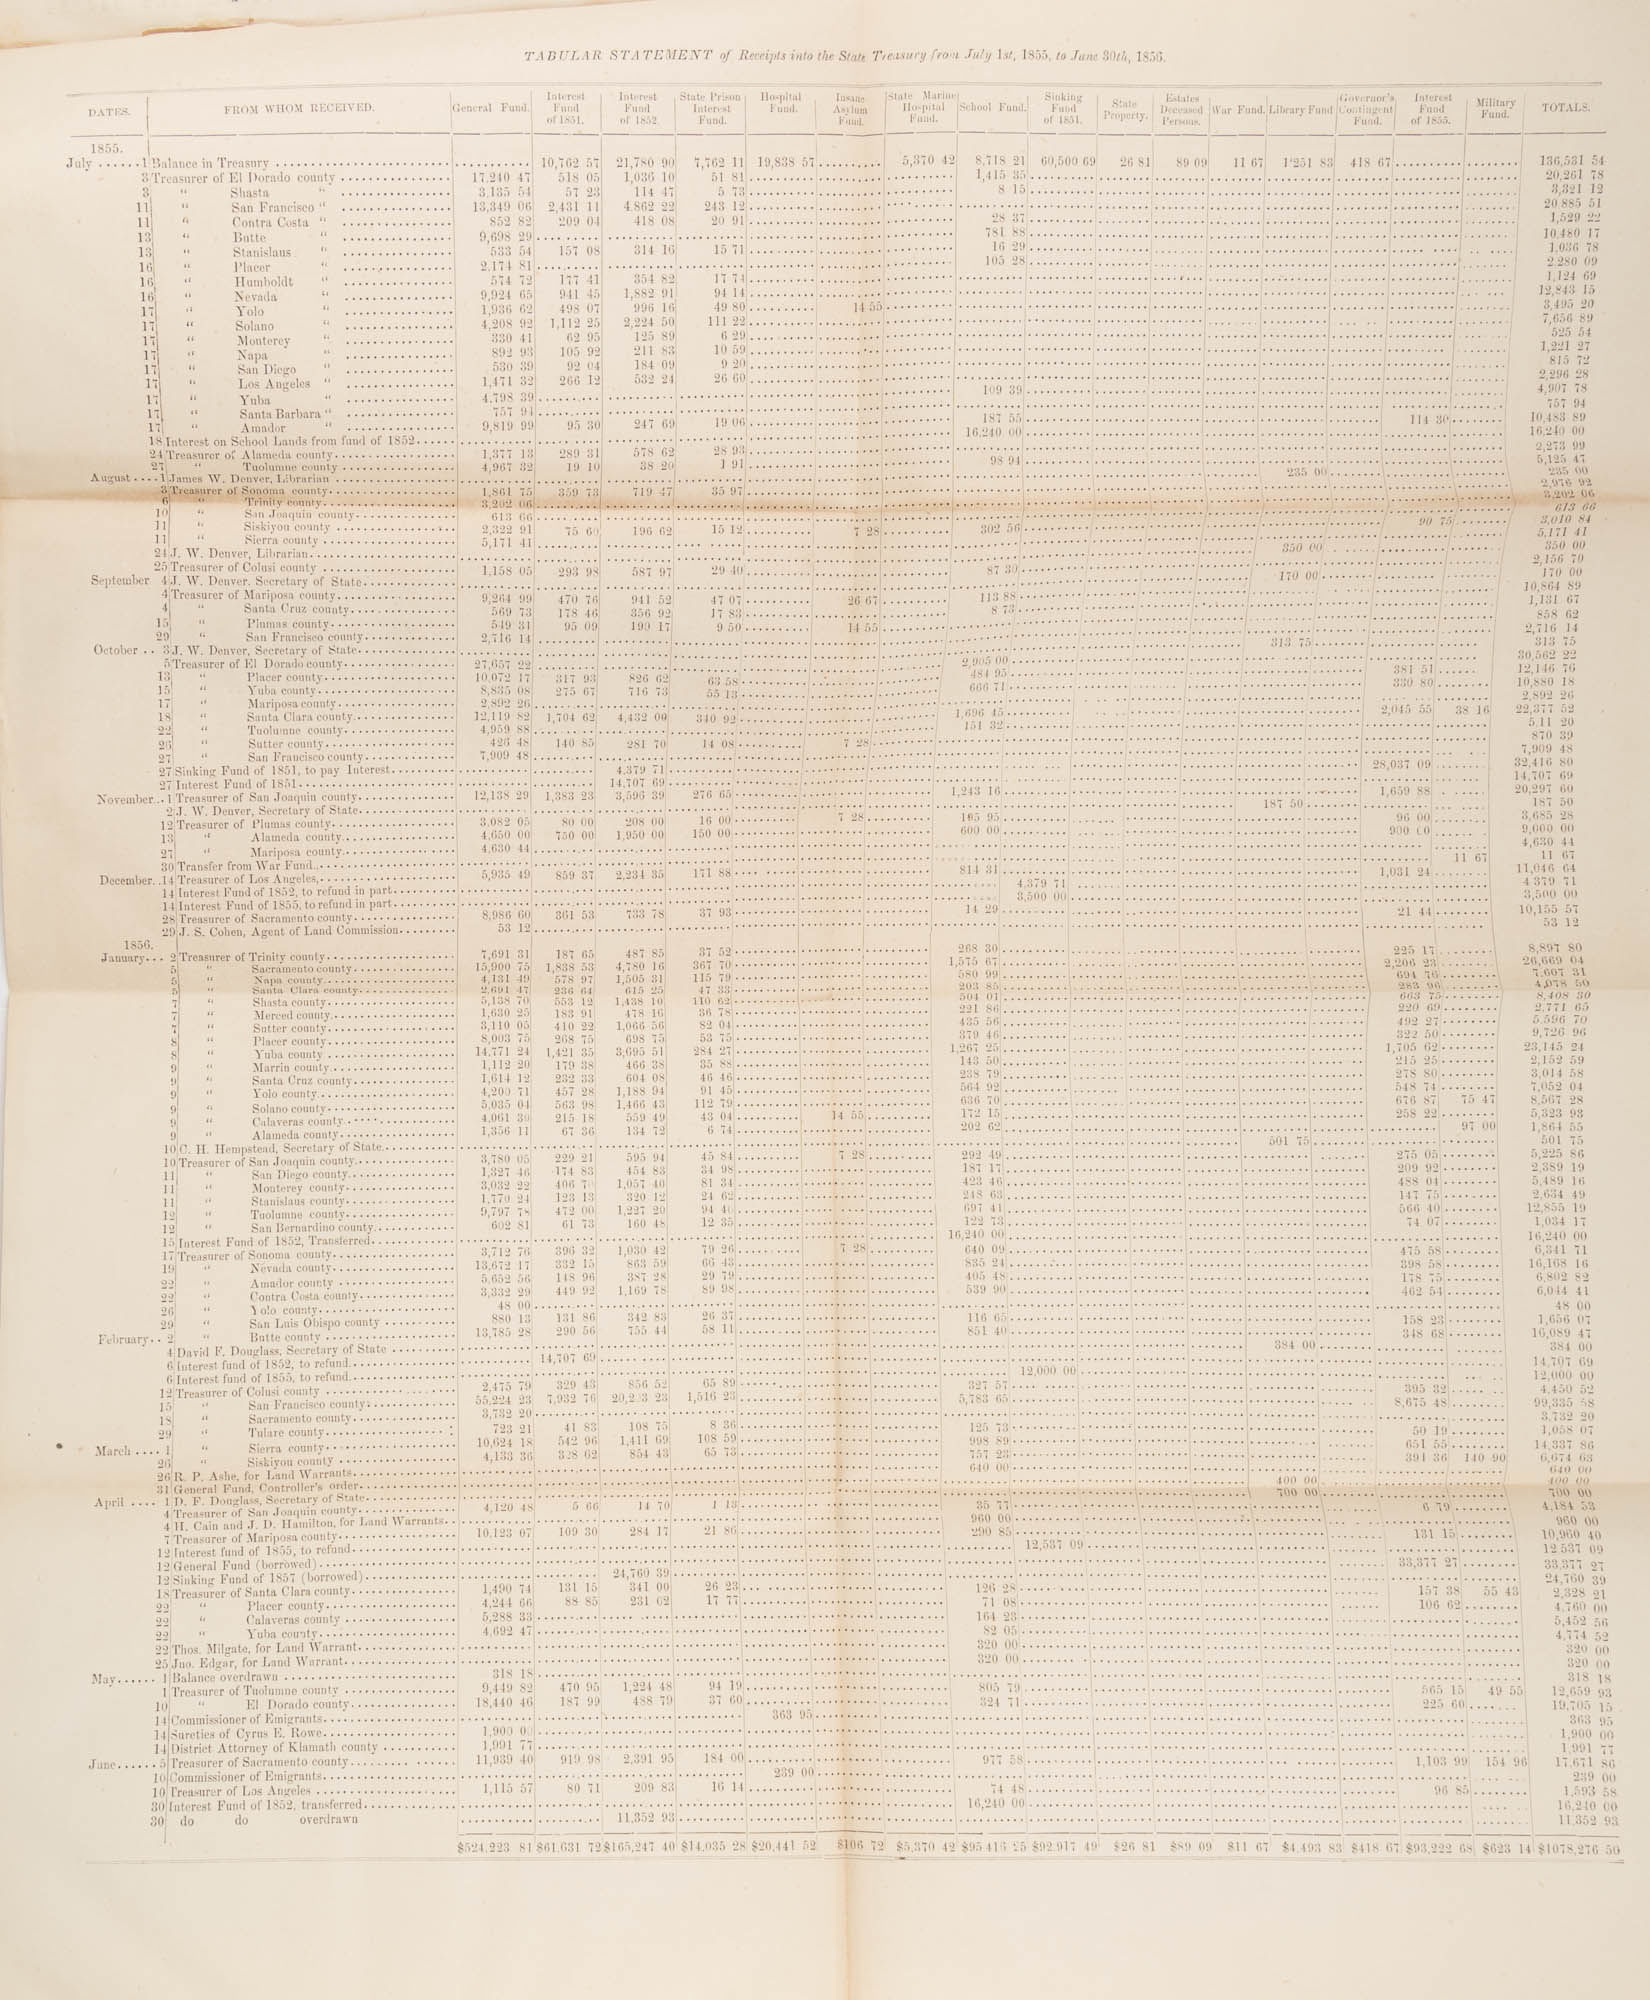 TABULAR STATEMENT of Receipts into the State Treasury from July 1st, 1855, to June 30th, 1856.
DATES. FROM WHOM RECEIVED. General Fund. Interest Fund of 1851. Interest Fund of 1852. State Prison Interest Fund. Hospital Fund. Insane Asylum Fund. State Marine Hospital Fund. School Fund. Sinking Fund of 1851. State Property. Estates Deceased Persons. War Fund. Library Fund Governor's Contingent Fund. Interest Fund of 1855. Military Fund. TOTALS.
1855.
July 1 Balance in Treasury 10,762 57 21,780 90 7,762 11 19,838 57 5,370 42 8,718 21 60,500 69 26 81 89 09 11 67 1'251 83 418 67 136,531 54
3 Treasurer of El Dorado county 17,240 47 518 05 1,036 10 51 81 1,415 35 20,261 78
3 " Shasta " 3,135 54 57 23 114 47 5 73 8 15 3,321 12
11 " San Francisco " 13,349 06 2,431 11 4,862 22 243 12 20,885 51
11 " Contra Costa " 852 82 209 04 418 08 20 91 28 37 1,529 22
13 " Butte " 9,698 29 781 88 10,480 17
13 " Stanislaus " 533 54 157 08 314 16 15 71 16 29 1,036 78
16 " Placer " 2,174 81 105 28 2,280 09
16 " Humboldt " 574 72 177 41 354 82 17 74 1,124 69
16 " Nevada " 9,924 65 941 45 1,882 91 94 14 12,843 15
17 " Yolo " 1,936 62 498 07 996 16 49 80 14 55 3,495 20
17 " Solano " 4,208 92 1,112 25 2,224 50 111 22 7,656 89
17 " Monterey " 330 41 62 95 125 89 6 29 525 54
17 " Napa " 892 93 105 92 211 83 10 59 1,221 27
17 " San Diego " 530 39 92 04 184 09 9 20 815 72
17 " Los Angeles " 1,471 32 266 12 532 24 26 60 2,296 28
17 " Yuba " 4,798 39 109 39 4,907 78
17 " Santa Barbara " 757 94 757 94
17 " Amador " 9,819 99 95 30 247 69 19 06 187 55 114 30 10,483 89
18 Interest on School Lands from fund of 1852 16,240 00 16,240 00
24 Treasurer of Alameda county 1,377 13 289 31 578 62 28 93 2,273 99
27 " Tuolumne county 4,967 32 19 10 38 20 1 91 98 94 5,125 47
August 1 James W. Denver, Librarian 235 00 235 00
3 Treasurer of Sonoma county 1,861 75 359 73 719 47 35 97 2,976 92
6 " Trinity county 3,202 06 3,202 06
10 " San Joaquin county 613 66 613 66
11 " Siskiyou county 2,322 91 75 60 196 62 15 12 7 28 302 56 90 75 3,010 84
11 " Sierra county 5,171 41 5,171 41
24 J. W. Denver, Librarian 350 00 350 00
25 Treasurer of Colusi county 1,158 05 293 98 587 97 29 40 87 30 2,156 70
September 4 J. W. Denver, Secretary of State 170 00 170 00
4 Treasurer of Mariposa county 9,264 99 470 76 941 52 47 07 26 67 113 88 10,864 89
4 " Santa Cruz county 569 73 178 46 356 92 17 83 8 73 1,131 67
15 " Plumas county 549 31 95 09 190 17 9 50 14 55 858 62
29 " San Francisco county 2,716 14 2,716 14
October 3 J. W. Denver, Secretary of State 313 75 313 75
5 Treasurer of El Dorado county 27,657 22 2,905 00 30,562 22
13 " Placer county 10,072 17 317 93 826 62 63 58 484 95 381 51 12,146 76
15 " Yuba county 8,835 08 275 67 716 73 55 13 666 71 330 80 10,880 18
17 " Mariposa county 2,892 26 2,892 26
18 " Santa Clara county 12,119 82 1,704 62 4,432 00 340 92 1,696 45 2,045 55 38 16 22,377 52
22 " Tuolumne county 4,959 88 151 32 5,11 20
26 " Sutter county 426 48 140 85 281 70 14 08 7 28 870 39
27 " San Francisco county 7,909 48 7,909 48
27 Sinking Fund of 1851, to pay Interest 4,379 71 28,037 09 32,416 80
27 Interest Fund of 1851 14,707 69 14,707 69
November 1 Treasurer of San Joaquin county 12,138 29 1,383 23 3,596 39 276 65 1,243 16 1,659 88 20,297 60
2 J. W. Denver, Secretary of State 187 50 187 50
12 Treasurer of Plumas county 3,082 05 80 00 208 00 16 00 7 28 195 95 96 00 3,685 28
13 " Alameda county 4,650 00 750 00 1,950 00 150 00 600 00 900 00 9,000 00
27 " Mariposa county 4,630 44 4,630 44
30 Transfer from War Fund 11 67 11 67
December 14 Treasurer of Los Angeles, 5,935 49 859 37 2,234 35 171 88 814 31 1,031 24 11,046 64
14 Interest Fund of 1852, to refund in part 4,379 71 4 379 71
14 Interest Fund of 1855, to refund in part 3,500 00 3,500 00
28 Treasurer of Sacramento county 8,986 60 361 53 733 78 37 93 14 29 21 44 10,155 57
29 J. S. Cohen, Agent of Land Commission 53 12 53 12
1856.
January 2 Treasurer of Trinity county 7,691 31 187 65 487 85 37 52 268 30 225 17 8,897 80
5 " Sacramento county 15,900 75 1,838 53 4,780 16 367 70 1,575 67 2,206 23 26,669 04
5 " Napa county 4,131 49 578 97 1,505 31 115 79 580 99 694 76 7,607 31
5 " Santa Clara county 2,691 47 236 64 615 25 47 33 203 85 283 96 4,078 50
7 " Shasta county 5,138 70 553 12 1,438 10 110 62 504 01 663 75 8,408 30
7 " Merced county 1,630 25 183 91 478 16 36 78 221 86 220 69 2,771 65
7 " Sutter county 3,110 05 410 22 1,066 56 82 04 435 56 492 27 5,596 70
8 " Placer county 8,003 75 268 75 698 75 53 75 379 46 322 50 9,726 96
8 " Yuba county 14,771 24 1,421 35 3,695 51 284 27 1,267 25 1,705 62 23,145 24
9 " Marrin county 1,112 20 179 38 466 38 35 88 143 50 215 25 2,152 59
9 " Santa Cruz county 1,614 12 232 33 604 08 46 46 238 79 278 80 3,014 58
9 " Yolo county 4,200 71 457 28 1,188 94 91 45 564 92 548 74 7,052 04
9 " Solano county 5,035 04 563 98 1,466 43 112 79 636 70 676 87 75 47 8,567 28
9 " Calaveras county 4,061 30 215 18 559 49 43 04 14 55 172 15 258 22 5,323 93
9 " Alameda county 1,356 11 67 36 134 72 6 74 202 62 97 00 1,864 55
10 C. H. Hempstead, Secretary of State 501 75 501 75
10 Treasurer of San Joaquin county 3,780 05 229 21 595 94 45 84 7 28 292 49 275 05 5,225 86
11 " San Diego county 1,327 46 174 83 454 83 34 98 187 17 209 92 2,389 19
11 " Monterey county 3,032 22 406 70 1,057 40 81 34 423 46 488 04 5,489 16
11 " Stanislaus county 1,770 24 123 13 320 12 24 62 248 63 147 75 2,634 49
12 " Tuolumne county 9,797 78 472 00 1,227 20 94 40 697 41 566 40 12,855 19
12 " San Bernardino county 602 81 61 73 160 48 12 35 122 73 74 07 1,034 17
15 Interest Fund of 1852, Transferred 16,240 00 16,240 00
17 Treasurer of Sonoma county 3,712 76 396 32 1,030 42 79 26 7 28 640 09 475 58 6,341 71
19 " Nevada county 13,672 17 332 15 863 59 66 43 835 24 398 58 16,168 16
22 " Amador county 5,652 56 148 96 387 28 29 79 405 48 178 75 6,802 82
22 " Contra Costa county 3,332 29 449 92 1,169 78 89 98 539 90 462 54 6,044 41
26 " Yolo county 48 00 48 00
29 " San Luis Obispo county 880 13 131 86 342 83 26 37 116 65 158 23 1,656 07
February 2 " Butte county 13,785 28 290 56 755 44 58 11 851 40 348 68 16,089 47
4 David F. Douglass, Secretary of State 384 00 384 00
6 Interest fund of 1852, to refund 14,707 69 14,707 69
6 Interest fund of 1855, to refund 12,000 00 12,000 00
12 Treasurer of Colusi county 2,475 79 329 43 856 52 65 89 327 57 395 32 4,450 52
15 " San Francisco county 55,224 23 7,932 76 1,516 23 5,783 65 8,675 48 99,335 58
18 " Sacramento county 3,732 20 3,732 20
29 " Tulare county 723 21 41 83 108 75 8 36 125 73 50 19 1,058 07
March 1 " Sierra county 10,624 18 542 96 1,411 69 108 59 998 89 651 55 14,337 86
26 " Siskiyou county 4,133 36 328 62 854 43 65 73 757 23 394 36 140 90 6,674 63
26 R. P. Ashe, for Land Warrants 640 00 640 00
31 General Fund, Controller's order 400 00 400 00
April 1 D. F. Douglass, Secretary of State 700 00 700 00
4 Treasurer of San Joaquin county 4,120 48 5 66 14 70 1 13 35 77 6 79 4,184 53
4 H. Cain and J. D. Hamilton, for Land Warrants 960 00 960 00
7 Treasurer of Mariposa county 10,123 07 109 30 284 17 21 86 290 85 131 15 10,960 40
12 Interest fund of 1855, to refund 12,537 09 12 537 09
12 General Fund (borrowed) 33,377 27 33,377 27
12 Sinking Fund of 1857 (borrowed) 24,760 39 24,760 39
18 Treasurer of Santa Clara county 1,490 74 131 15 341 00 26 23 126 28 157 38 55 43 2,328 21
22 " Placer county 4,244 66 88 85 231 02 17 77 71 08 106 62 4,760 00
22 " Calaveras county 5,288 33 164 23 5,452 56
22 " Yuba county 4,692 47 82 05 4,774 52
22 Thos. Milgate, for Land Warrant 320 00 320 00
25 Jno. Edgar, for Land Warrant 320 00 320 00
May 1 Balance overdrawn 318 18 318 18
1 Treasurer of Tuolumne county 9,449 82 470 95 1,224 48 94 19 805 79 565 15 49 55 12,659 93
10 " El Dorado county 18,440 46 187 99 488 79 37 60 324 71 225 60 19,705 15
14 Commissioner of Emigrants 363 95 363 95
14 Sureties of Cyrus E. Rowe 1,900 00 1,900 00
14 District Attorney of Klamath county 1,991 77 1,991 77
June 5 Treasurer of Sacramento county 11,939 40 919 98 2,391 95 184 00 977 58 1,103 99 154 96 17,671 86
10 Commissioner of Emigrants 239 00 239 00
10 Treasurer of Los Angeles 1,115 57 80 71 209 83 16 14 74 48 96 85 1,593 58
30 Interest Fund of 1852, transferred 16,240 00 16,240 00
30 do do overdrawn 11,352 93 11,352 93
$524,223 81 $61,631 72 $165,247 40 $14,035 28 $20,441 52 $106 72 $5,370 42 $95 416 25 $92,917 49 $26 81 $89 09 $11 67 $4,493 83 $418 67 $93,222 68 $623 14 $1078,276 50